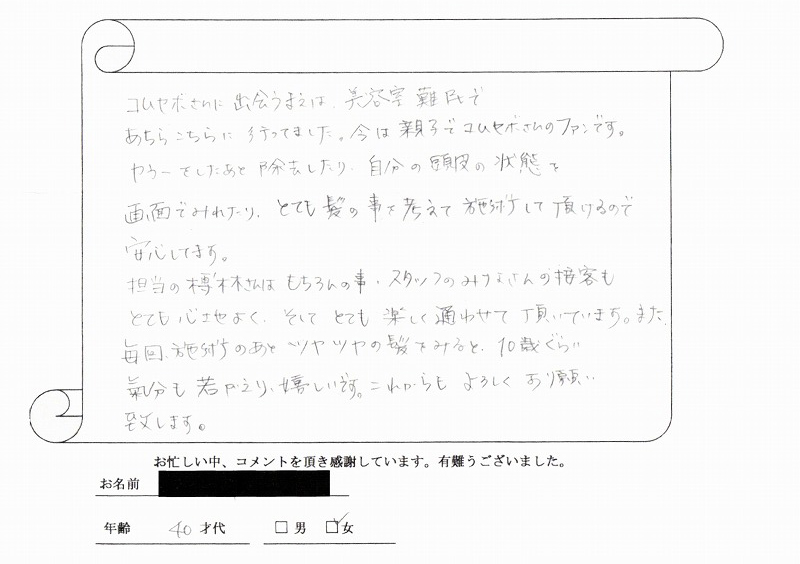 コムセボさんに出会うまえは、美容室難民で
あちらこちらに行ってました。今は親子でコムセボさんのファンです。
カラーをしたあと除去したり、自分の頭皮の状態を
画面でみれたり、とても髪の事を考えて施術して頂けるので
安心してます。
担当の樽木さんはもちろんの事・スタッフのみなさんの接客も
とても心地よく、そして とても 楽しく通わせて頂いています。また、
毎回、施術のあと ツヤツヤの髪をみると、10歳ぐらい
気分も若がえり、嬉しいです。これからも よろしく お願い
致します。
お忙しい中、コメントを頂き感謝しています。有難うございました。
お名前
年齢 40 才代 □ 男 ☑ 女